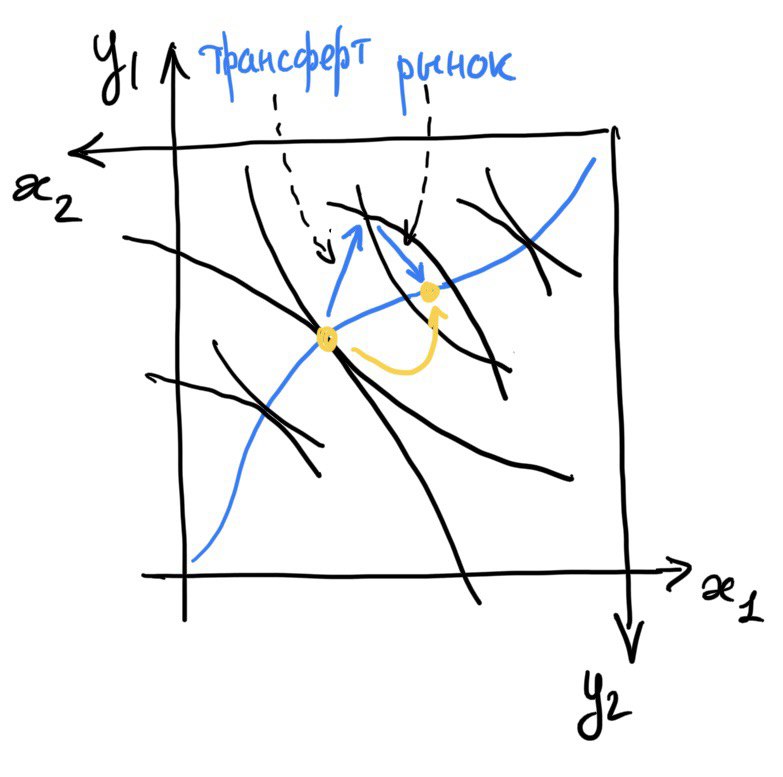 y1 трансферт рынок
x2
x1
y2